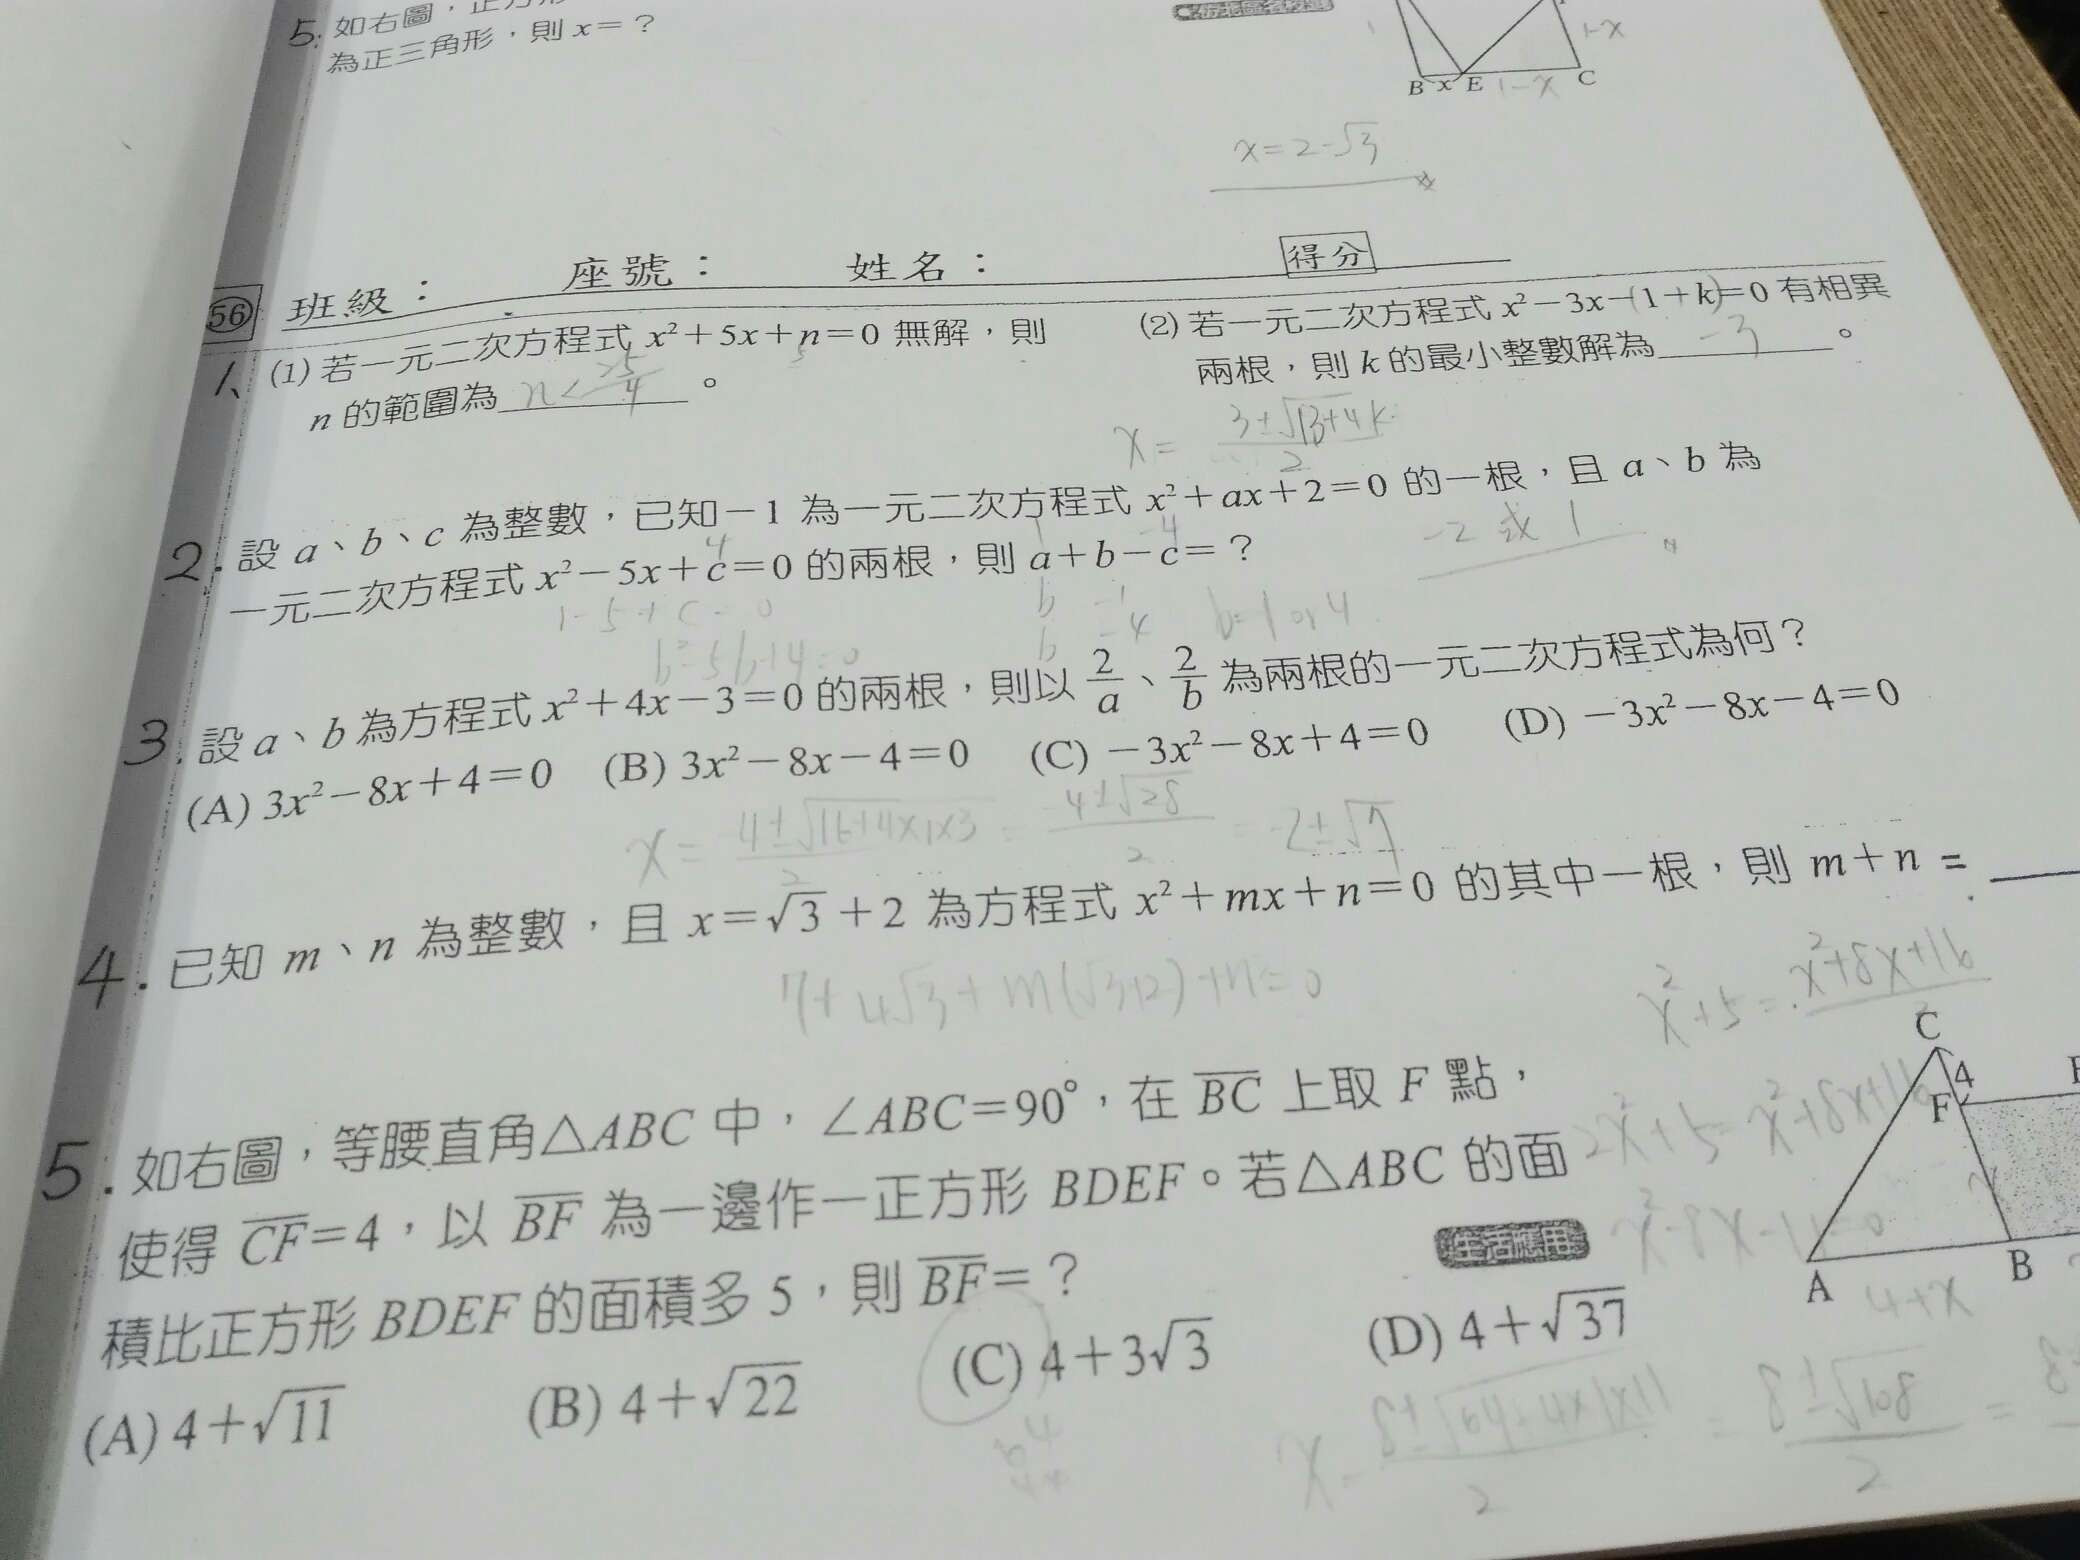 5. 如右圖,正方形
為正三角形,則 x=?
1-x
B x E 1-x C
x=2-√3
56 班級: 座號: 姓名: 得分
1、(1) 若一元二次方程式 x²+5x+n=0 無解,則
n 的範圍為 n< 25/4 。
(2) 若一元二次方程式 x²-3x-(1+k)=0 有相異
兩根,則 k 的最小整數解為 -3 。
x= 3±√13+4k / 2
2. 設 a、b、c 為整數,已知-1 為一元二次方程式 x²+ax+2=0 的一根,且 a、b 為
一元二次方程式 x²-5x+c=0 的兩根,則 a+b-c=?
4
-2 或 1
1-5+c=0
b²-5b+4=0
b=1 or 4
3. 設 a、b 為方程式 x²+4x-3=0 的兩根,則以 2/a、2/b 為兩根的一元二次方程式為何?
(A) 3x²-8x+4=0 (B) 3x²-8x-4=0 (C) -3x²-8x+4=0 (D) -3x²-8x-4=0
x= -4±√16+4x1x3 / 2 = -4±√28 / 2 = -2±√7
4. 已知 m、n 為整數,且 x=√3+2 為方程式 x²+mx+n=0 的其中一根,則 m+n =
7+4√3+m(√3+2)+n=0
x²+5= x²+8x+16 / 2
5. 如右圖,等腰直角△ABC 中,∠ABC=90°,在 BC 上取 F 點,
使得 CF=4,以 BF 為一邊作一正方形 BDEF。若△ABC 的面
積比正方形 BDEF 的面積多 5,則 BF=?
生活應用
2x²+5=x²+8x+16
C
4
F
A
B
4+x
(A) 4+√11 (B) 4+√22 (C) 4+3√3 (D) 4+√37
x= 8±√64+4x1x11 / 2 = 8±√108 / 2 =